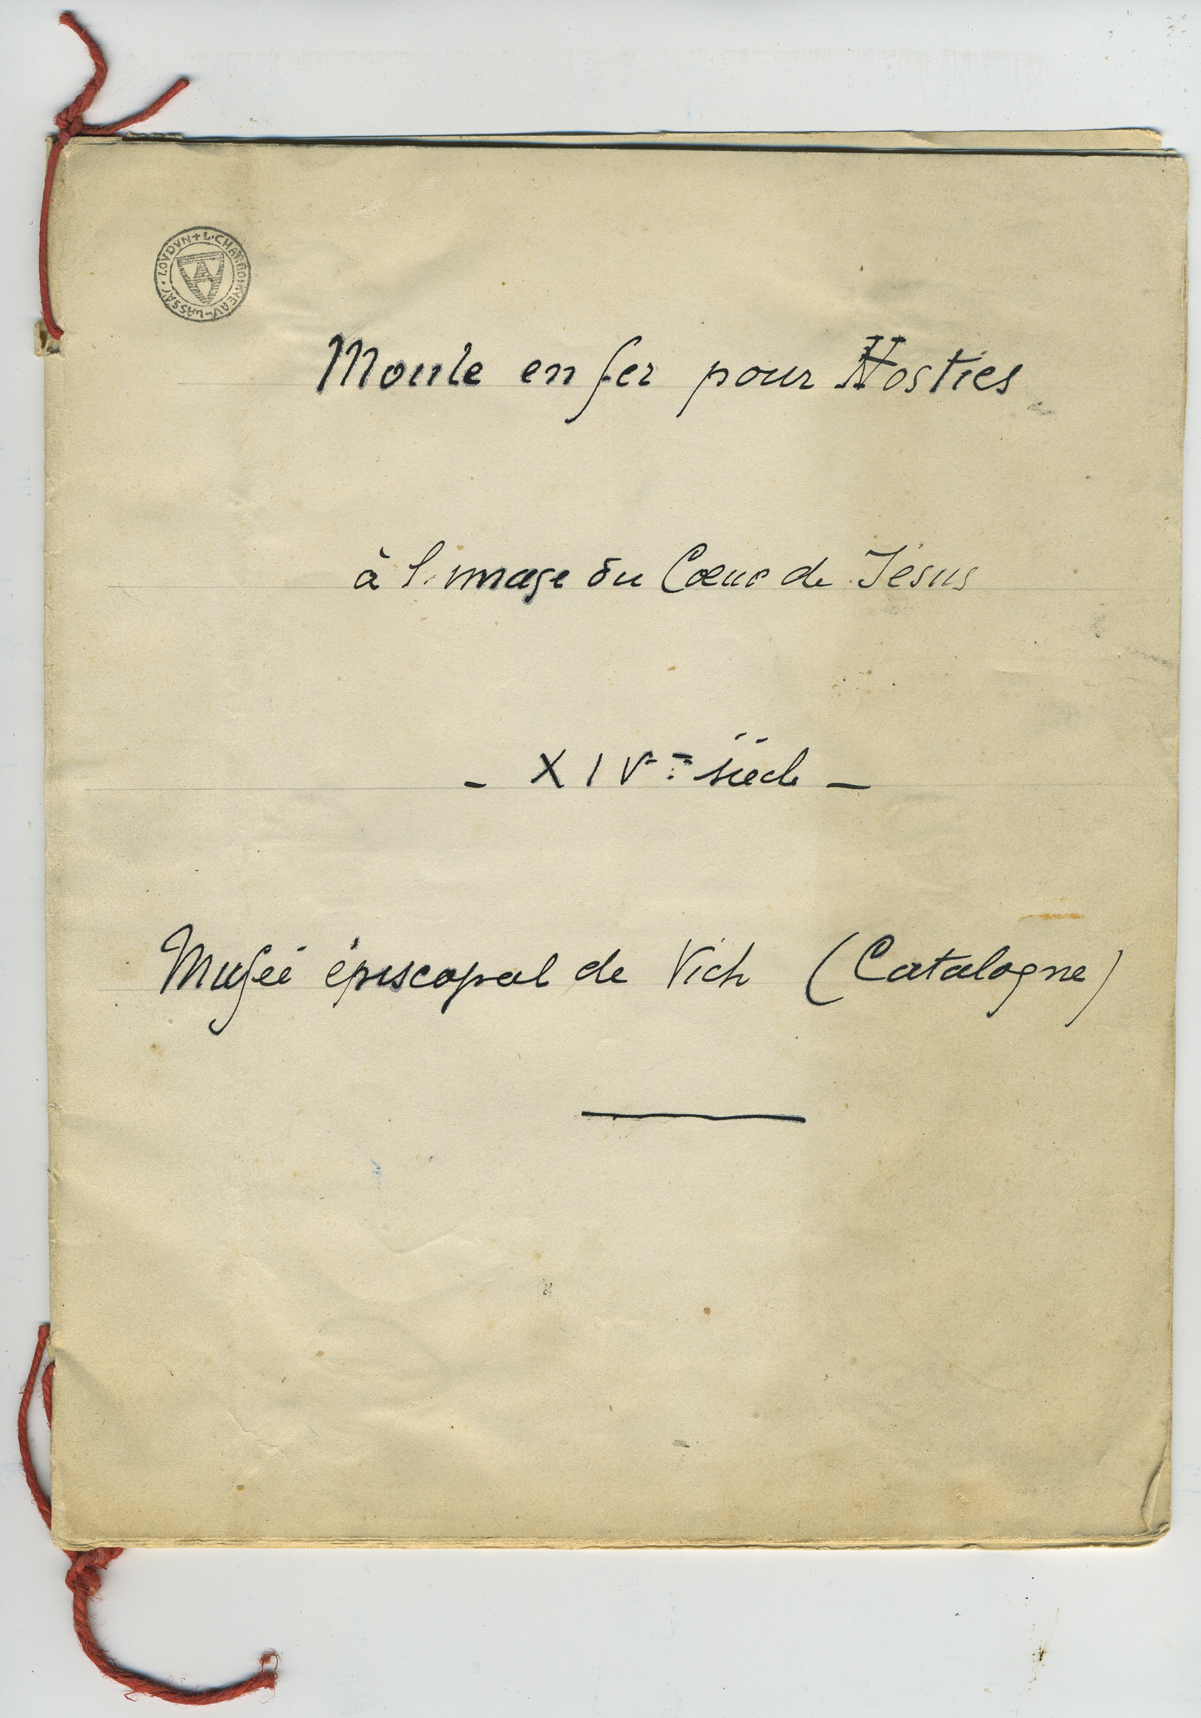 LOVDVN + L. CHARBONNEAV-LASSAY ·
Moule en fer pour Hosties
à l'image du Cœur de Jésus
- XIVe siècle -
Musée épiscopal de Vich (Catalogne)